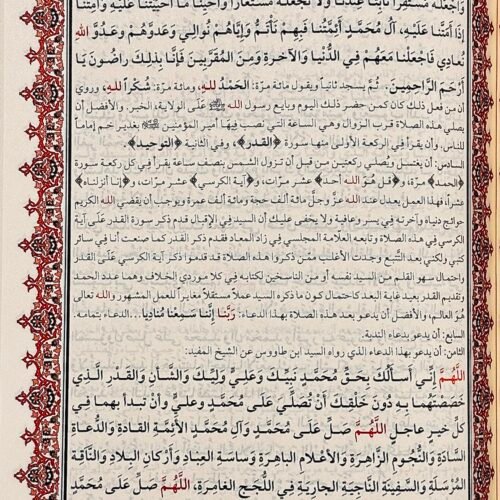 وَاجْعَلْهُ مُسْتَقِرّاً ثابِتاً عِنْدَنا وَلا تَجْعَلْهُ مُسْتَعاراً وَاَحْيِنا ما اَحْيَيْتَنا عَلَيْهِ وَاَمِتْنا
اِذا اَمَتَّنا عَلَيْهِ، آلُ مُحَمَّدٍ اَئِمَّتُنا فَبِهِمْ نَأْتَمُّ وَاِيَّاهُمْ نُوالِي وَعَدُوَّهُمْ وَعَدُوَّ اللهِ
نُعادِي فَاجْعَلْنا مَعَهُمْ فِي الدُّنْيا وَالآخِرَةِ وَمِنَ الْمُقَرَّبِينَ فَاِنَّا بِذلِكَ راضُونَ يَا
اَرْحَمَ الرَّاحِمِينَ. ثُمَّ يسجد ثانياً ويقول مائة مرّة: اَلْحَمْدُ للهِ، ومائة مرّة: شُكْراً للهِ، وروي
أن من فعل ذلك كان كمن حضر ذلك اليوم وبايع رسول الله ﷺ عَلَى الولاية، الخبر. والأفضل أن
يصلي هذه الصلاة قرب الزوال وهي الساعة التي نصب فيها أمير المؤمنين بغدير خم إماماً
للناس. وأن يقرأ في الركعة الأولى منها سورة ﴿القدر﴾، وفي الثانية ﴿التوحيد﴾.
السادس: أن يغتسل ويُصلي ركعتين من قبل أن تزول الشمس بنصف ساعة يقرأ في كل ركعة سورة
﴿الحمد﴾ مرّة، و﴿قل هُوَ الله أحد﴾ عشر مرّات، و﴿آية الكرسي﴾ عشر مرّات، و﴿إنا أنزلناه﴾
عشراً، فهذا العمل يعدل عند الله عزّ وجلّ مائة ألف حجة ومائة ألف عمرة ويوجب أن يقضي الله الكريم
حوائج دنياه وآخرته في يسر وعافية ولا يخفى عليك أن السيد في الإقبال قدم ذكر سورة القدر عَلَى آية
الكرسي في هذه الصلاة وتابعه العلامة المجلسي في زاد المعاد فقدم ذكر القدر كما صنعت أنا في سائر
كتبي ولكني بعد التتبع وجدت الأغلب ممّن ذكروا هذه الصلاة قد قدموا ذكر آية الكرسي عَلَى القدر
واحتمال سهو القلم من السيد نفسه أو من الناسخين لكتابه في كلا موردي الخلاف وهما عدد الحمد
وتقديم القدر بعيد غاية البعد كاحتمال كون ما ذكره السيد عملاً مستقلاً مغايراً للعمل المشهور والله تعالى
هُوَ العالم، والأفضل أن يدعو بعد هذه الصلاة بهذا الدعاء: رَبَّنا اِنَّنا سَمِعْنا مُنادِياً...الدعاء بتمامه.
السابع: أن يدعو بدعاء الندبة.
الثامن: أن يدعو بهذا الدعاء الذي رواه السيد ابن طاووس عن الشيخ المفيد:
اَللّهُمَّ اِنِّي اَسْأَلُكَ بِحَقِّ مُحَمَّدٍ نَبِيِّكَ وَعَلِيٍّ وَلِيِّكَ وَالشَّأْنِ وَالْقَدْرِ الَّذِي
خَصَصْتَهُما بِهِ دُونَ خَلْقِكَ اَنْ تُصَلِّيَ عَلَى مُحَمَّدٍ وَعَلِيٍّ وَاَنْ تَبْدَأَ بِهِما فِي
كُلِّ خَيْرٍ عاجِلٍ، اَللّهُمَّ صَلِّ عَلَى مُحَمَّدٍ وَآلِ مُحَمَّدٍ الأَئِمَّةِ الْقادَةِ وَالدُّعاةِ
السَّادَةِ وَالنُّجُومِ الزَّاهِرَةِ وَالأَعْلامِ الْباهِرَةِ وَساسَةِ الْعِبادِ وَاَرْكانِ الْبِلادِ وَالنَّاقَةِ
الْمُرْسَلَةِ وَالسَّفِينَةِ النَّاجِيَةِ الْجارِيَةِ فِي اللُّجَجِ الْغامِرَةِ، اَللّهُمَّ صَلِّ عَلَى مُحَمَّدٍ